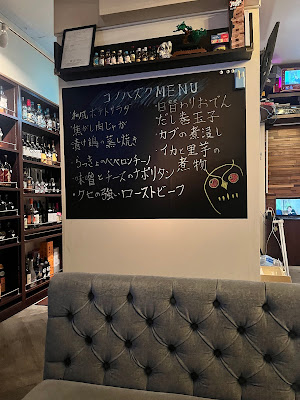 コノハズク MENU
・和風ポテトサラダ
・焦がし肉じゃが
・漬け鶏の藁焼き
・らっきょのペペロンチーノ
・味噌とチーズのナポリタン
・クセの強いローストビーフ
・日替わりおでん
・だし巻玉子
・カブの煮浸し
・イカと里芋の
煮物